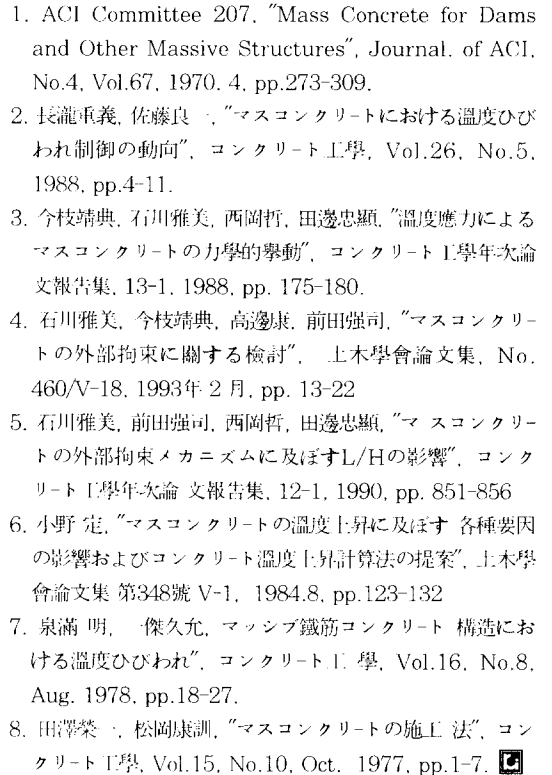 1. ACI Committee 207, "Mass Concrete for Dams
and Other Massive Structures", Journal. of ACI,
No.4, Vol.67, 1970. 4, pp.273-309.
2. 長瀧重義, 佐藤良一, "マスコンクリ-トにおける溫度ひび
われ制御の動向", コンクリ-ト工學, Vol.26, No.5,
1988, pp.4-11.
3. 今枝靖典, 石川雅美, 西岡哲, 田邊忠顯, "溫度應力による
マスコンクリ-トの力學的擧動", コンクリ-ト工學年次論
文報告集, 13-1, 1988, pp. 175-180.
4. 石川雅美, 今枝靖典, 高邊康, 前田强司, "マスコンクリ-
トの外部拘束に關する檢討", 土木學會論文集, No.
460/V-18, 1993年 2 月, pp. 13-22
5. 石川雅美, 前田强司, 西岡哲, 田邊忠顯, "マ スコンクリ-
トの外部拘束メカニズムに及ぼすL/Hの影響", コンク
リ-ト工學年次論 文報告集, 12-1, 1990, pp. 851-856
6. 小野 定, "マスコンクリ-トの溫度上昇に及ぼす 各種要因
の影響およびコンクリ-ト溫度上昇計算法の提案", 土木學
會論文集 第348號 V-1, 1984.8, pp.123-132
7. 泉滿 明, 一傑久允, マッシブ鐵筋コンクリ-ト 構造にお
ける溫度ひびわれ", コンクリ-ト工 學, Vol.16, No.8,
Aug. 1978, pp.18-27.
8. 田澤榮一, 松岡康訓, "マスコンクリ-トの施工 法", コン
クリ-ト工學, Vol.15, No.10, Oct. 1977, pp.1-7.